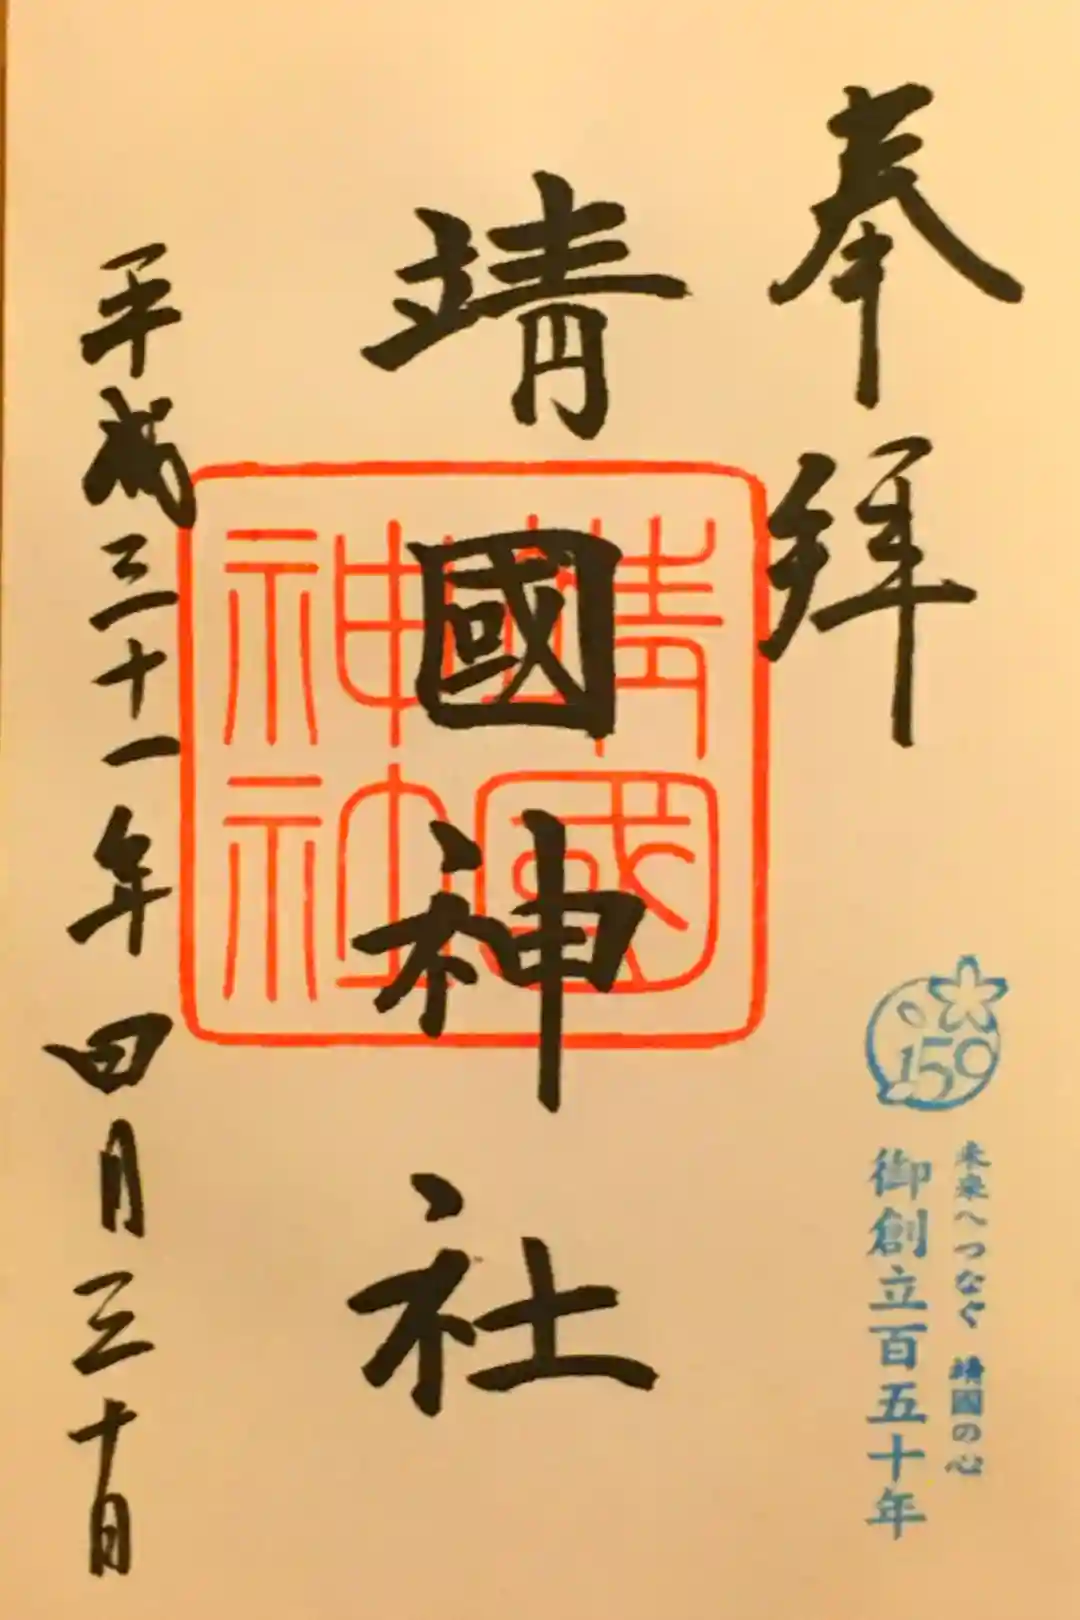 奉拝
靖國神社
靖國
神社
平成三十一年四月三十日
159
未来へつなぐ 靖國の心
御創立百五十年